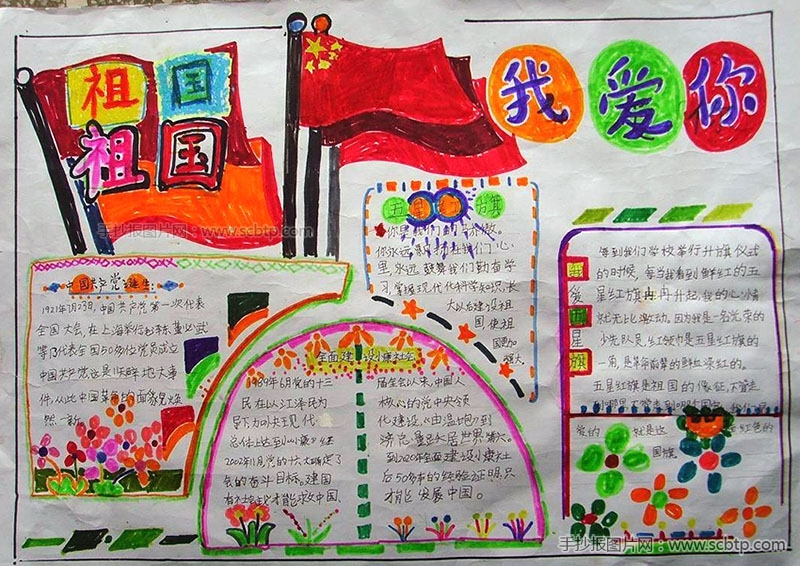 祖国
祖国
我爱你
手抄报图片网：www.scbtp.com
五星红旗
你永远飘扬在我们心
里永远鼓舞我们勤奋学
习,掌握现代化科学知识,长
大以后建设祖
国,使祖
国更加
强大。
中国共产党诞生:
1921年7月23日,中国共产党第一次代表
全国大会,在上海举行毛泽东、董必武
等13代表全国50多位党员成立
中国共产党这是开天辟地大事
件,从此中国革命的面貌焕
然一新。
全面建设小康社会
1989年6月党的十三
民在以江泽民为
导下向央现代
总体上达到小康继
2002年11月党的十六大确定了
会的奋斗目标。建国
有社会主义才能救中国,
届四全会以来,中国人
核心的党中央领
化建设《由温饱》到
到2020年全面建设小康社
后50多年的经验证明,只
才能发展中国。
我爱五星旗
每到我们学校举行升旗仪式
的时候,每当我看到鲜红的五
星红旗冉冉升起,我的心情
就无比激动。因为我是一名光荣的
少先队员,红领巾是五星红旗的
一角,是革命前辈的鲜血染红的。
五星红旗是祖国的像征,不管走
就是这
红色的
国旗
手抄报图片网：www.scbtp.com